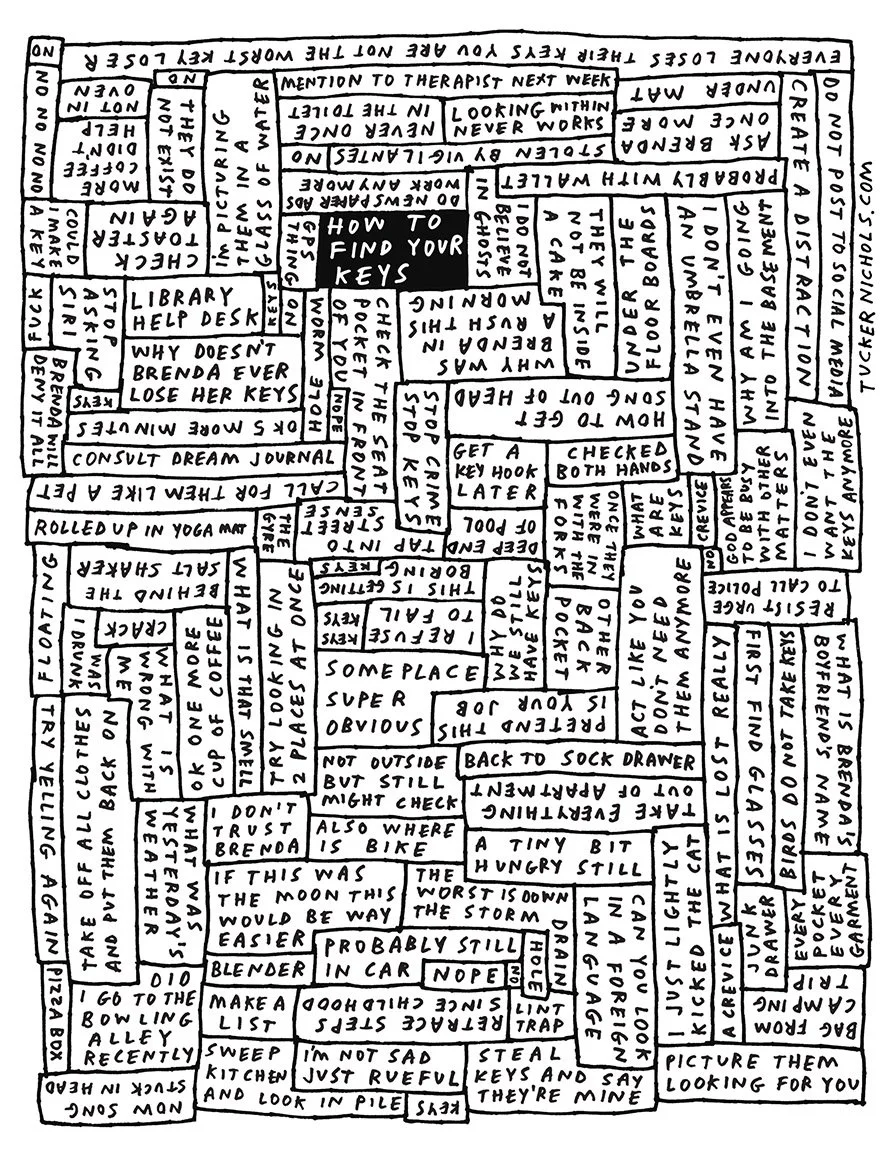 EVERYONE LOSES THEIR KEYS YOU ARE NOT THE WORST KEY LOSER
NO
NO NO NONO
NOT IN
OVEN
NO
THEY DO
NOT EXIST
I'M PICTURING
THEM IN A
GLASS OF WATER
MENTION TO THERAPIST NEXT WEEK
NEVER ONCE
IN THE TOILET
LOOKING WITHIN
NEVER WORKS
UNDER MAT
ASK BRENDA
ONCE MORE
CREATE A DISTRACTION
DO NOT POST TO SOCIAL MEDIA
TUCKERNICHOLS.COM
MORE
COFFEE
DIDN'T
HELP
STOLEN BY VIGILANTES
NO
PROBABLY WITH WALLET
DO NEWSPAPER ADS
WORK ANYMORE
I DO NOT
BELIEVE
IN GHOSTS
COULD
I MAKE
A KEY
CHECK
TOASTER
AGAIN
GPS
THING
HOW TO
FIND YOUR
KEYS
THEY WILL
NOT BE INSIDE
A CAKE
UNDER THE
FLOOR BOARDS
I DON'T EVEN HAVE
AN UMBRELLA STAND
WHY AM I GOING
INTO THE BASEMENT
FUCK
STOP
ASKING
SIRI
LIBRARY
HELP DESK
KEYS
NO
WORM HOLE
CHECK THE SEAT
POCKET IN FRONT
OF YOU
WHY WAS
BRENDA IN
A RUSH THIS
MORNING
BRENDA WILL
DENY IT ALL
KEYS
WHY DOESN'T
BRENDA EVER
LOSE HER KEYS
NOPE
STOP CRIME
STOP KEYS
HOW TO GET
SONG OUT OF HEAD
OK 5 MORE MINUTES
CONSULT DREAM JOURNAL
GET A
KEY HOOK
LATER
CHECKED
BOTH HANDS
I DON'T EVEN
WANT THE
KEYS ANYMORE
GOD APPEARS
TO BE BUSY
WITH OTHER
MATTERS
CREVICE
NO
CALL FOR THEM LIKE A PET
ROLLED UP IN YOGA MAT
THE
GYRE
TAP INTO
STREET
SENSE
DEEP END
OF POOL
ONCE THEY
WERE IN
WITH THE
FORKS
WHAT
ARE
KEYS
FLOATING
BEHIND THE
SALT SHAKER
WHAT IS THAT SMELL
TRY LOOKING IN
2 PLACES AT ONCE
THIS IS GETTING
BORING
KEYS
I REFUSE
TO FAIL
KEYS
KEYS
WHY DO
WE STILL
HAVE KEYS
OTHER
BACK
POCKET
ACT LIKE YOU
DON'T NEED
THEM ANYMORE
RESIST URGE
TO CALL POLICE
I DRUNK
WAS
CRACK
WHAT IS
WRONG WITH
ME
OK ONE MORE
CUP OF COFFEE
SOMEPLACE
SUPER
OBVIOUS
PRETEND THIS
IS YOUR JOB
WHAT IS LOST REALLY
FIRST FIND GLASSES
BIRDS DO NOT TAKE KEYS
WHAT IS BRENDA'S
BOYFRIEND'S NAME
TRY YELLING AGAIN
TAKE OFF ALL CLOTHES
AND PUT THEM BACK ON
NOT OUTSIDE
BUT STILL
MIGHT CHECK
BACK TO SOCK DRAWER
TAKE EVERYTHING
OUT OF APARTMENT
WHAT WAS
YESTERDAY'S
WEATHER
I DON'T
TRUST
BRENDA
ALSO WHERE
IS BIKE
A TINY BIT
HUNGRY STILL
I JUST LIGHTLY
KICKED THE CAT
IF THIS WAS
THE MOON THIS
WOULD BE WAY
EASIER
THE
WORST IS DOWN
THE STORM
DRAIN
HOLE
NO
CAN YOU LOOK
IN A FOREIGN
LANGUAGE
JUNK
DRAWER
EVERY
POCKET
EVERY
GARMENT
A CREVICE
PIZZA BOX
DID
I GO TO THE
BOWLING
ALLEY
RECENTLY
BLENDER
PROBABLY STILL
IN CAR
NOPE
MAKE A
LIST
RETRACE STEPS
SINCE CHILDHOOD
LINT
TRAP
BAG FROM
CAMPING
TRIP
NOW SONG
STUCK IN HEAD
SWEEP
KITCHEN
AND LOOK IN PILE
I'M NOT SAD
JUST RUEFUL
KEYS
STEAL
KEYS AND SAY
THEY'RE MINE
PICTURE THEM
LOOKING FOR YOU